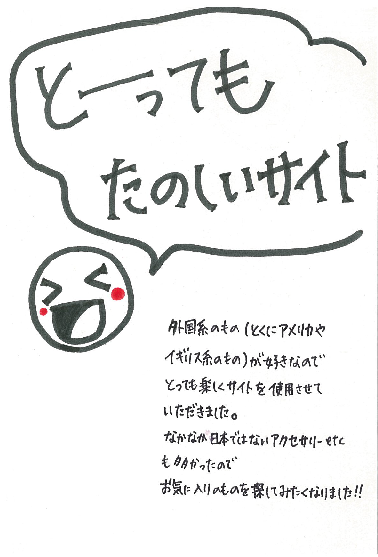 とーっても
たのしいサイト
外国系のもの(とくにアメリカや
イギリス系のもの)が好きなので
とっても楽しくサイトを使用させて
いただきました。
なかなか日本ではないアクセサリーetc
も多かったので
お気に入りのものを探してみたくなりました!!